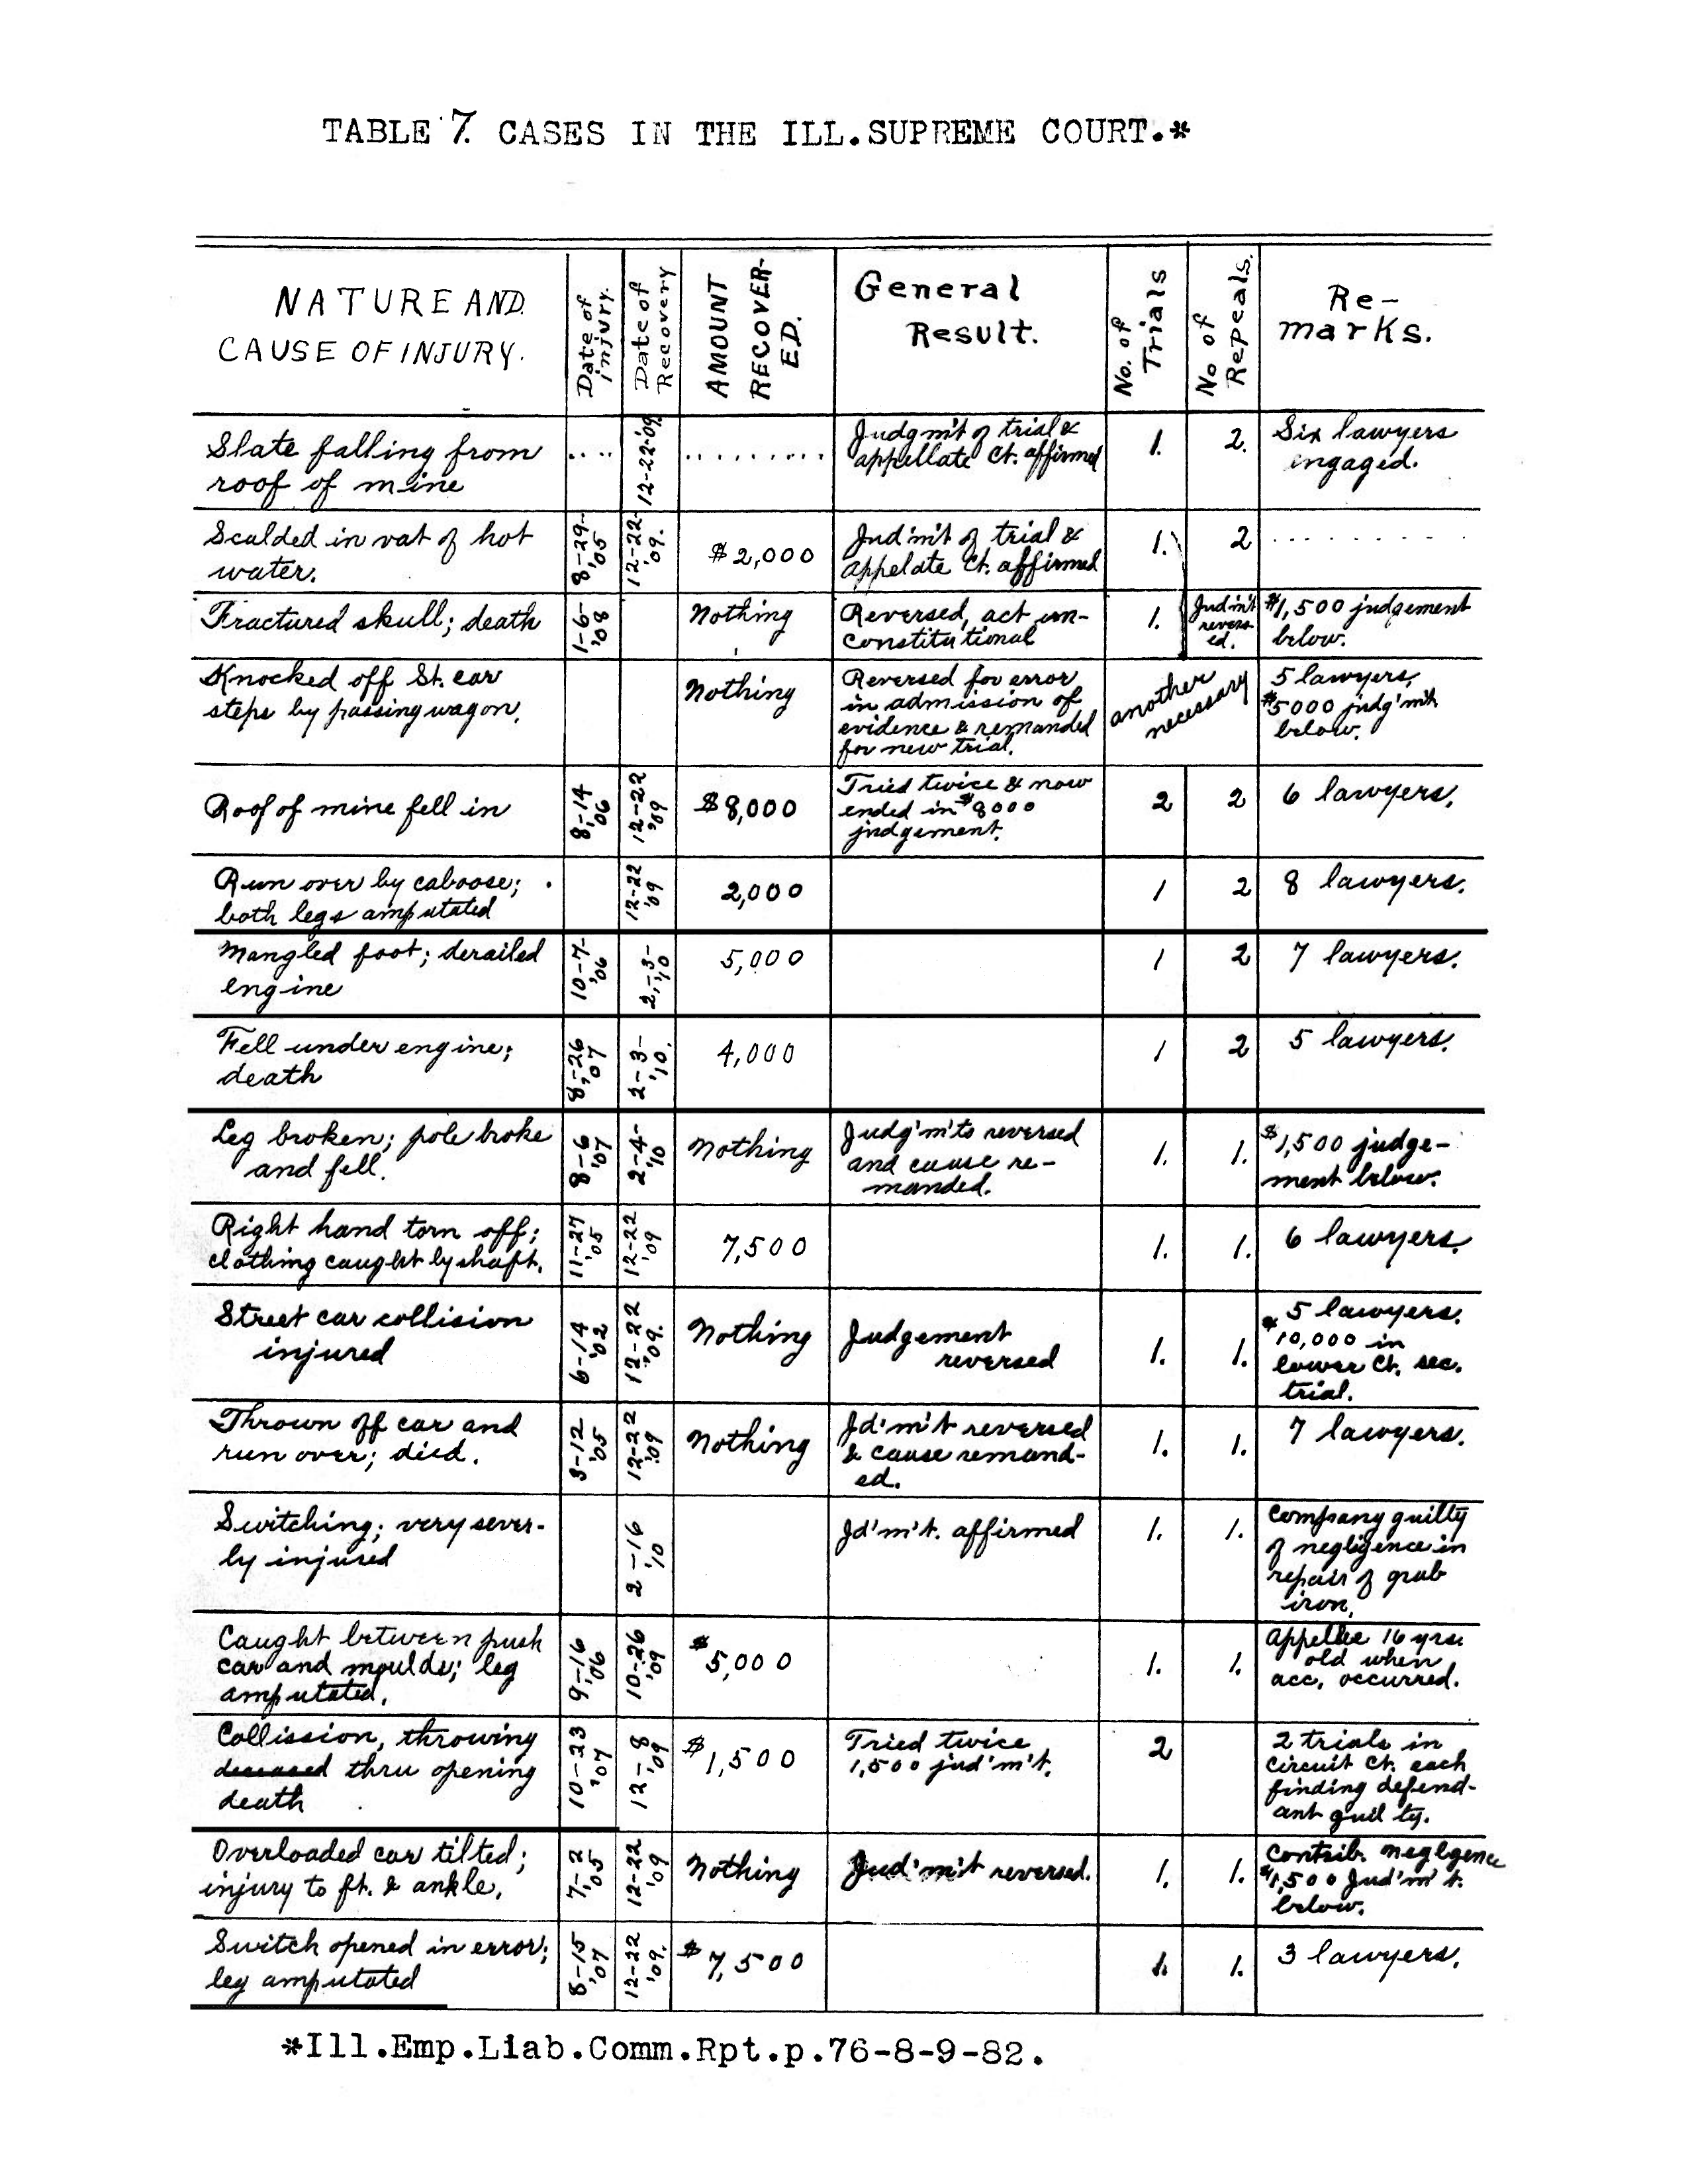 TABLE 7. CASES IN THE ILL.SUPREME COURT.*
NATURE AND
CAUSE OF INJURY.
Date of
injury.
Date of
Recovery
AMOUNT
RECOVER-
ED.
General
Result.
No. of
Trials
No of
Repeals.
Re-
marks.
Slate falling from
roof of mine
....
12-22-'09.
.........
Judgm't of trial &
appellate Ct. affirmed
1.
2.
Six lawyers
engaged.
Scalded in vat of hot
water.
8-29-
'05
12-22-
'09.
$2,000
Jud'm't of trial &
appelate Ct. affirmed
1.
2
.........
Fractured skull; death
1-6-
'08
Nothing
Reversed, act un-
constitutional
1.
Jud'm't
revers-
ed.
$1,500 judgement
below.
Knocked off St. car
steps by passing wagon.
Nothing
Reversed for error
in admission of
evidence & remanded
for new trial.
another
necessary
5 lawyers,
$5000 judg'm't
below.
Roof of mine fell in
8-14
'06
12-22
'09
$8,000
Tried twice & now
ended in $8000
judgement.
2
2
6 lawyers.
Run over by caboose;
both legs amputated
12-22
'09
2,000
1
2
8 lawyers.
Mangled foot; derailed
engine
10-7-
'06
2-3-
'10
5,000
1
2
7 lawyers.
Fell under engine;
death
8-26
'07
2-3-
'10.
4,000
1
2
5 lawyers.
Leg broken; pole broke
and fell.
8-6
'07
2-4-
'10
Nothing
Judg'm'ts reversed
and cause re-
manded.
1.
1.
$1,500 judge-
ment below.
Right hand torn off;
clothing caught by shaft.
11-27
'05
12-22
'09
7,500
1.
1.
6 lawyers.
Street car collision
injured
6-14
'02
12-22
'09.
Nothing
Judgement
reversed
1.
1.
5 lawyers.
$10,000 in
lower Ct. sec.
trial.
Thrown off car and
run over; died.
3-12
'05
12-22
'09
Nothing
Jd'm't reversed
& cause remand-
ed.
1.
1.
7 lawyers.
Switching; very sever-
ly injured
2-16
'10
Jd'm't. affirmed
1.
1.
Company guilty
of negligence in
repair of grab
iron.
Caught between push
car and moulds; leg
amputated.
9-16
'06
10-26
'09
$5,000
1.
1.
Appellee 16 yrs.
old when
acc. occurred.
Collission, throwing
deceased thru opening
death
10-23
'07
12-8
'09
$1,500
Tried twice
1,500 jud'm't.
2
2 trials in
circuit Ct. each
finding defend-
ant guilty.
Overloaded car tilted;
injury to ft. & ankle.
7-2
'05
12-22
'09
Nothing
Jud'm't reversed.
1.
1.
Contrib. neglgence
$1,500 Jud'm't.
below.
Switch opened in error;
leg amputated
8-15
'07
12-22
'09.
$7,500
1.
1.
3 lawyers.
*Ill.Emp.Liab.Comm.Rpt.p.76-8-9-82.